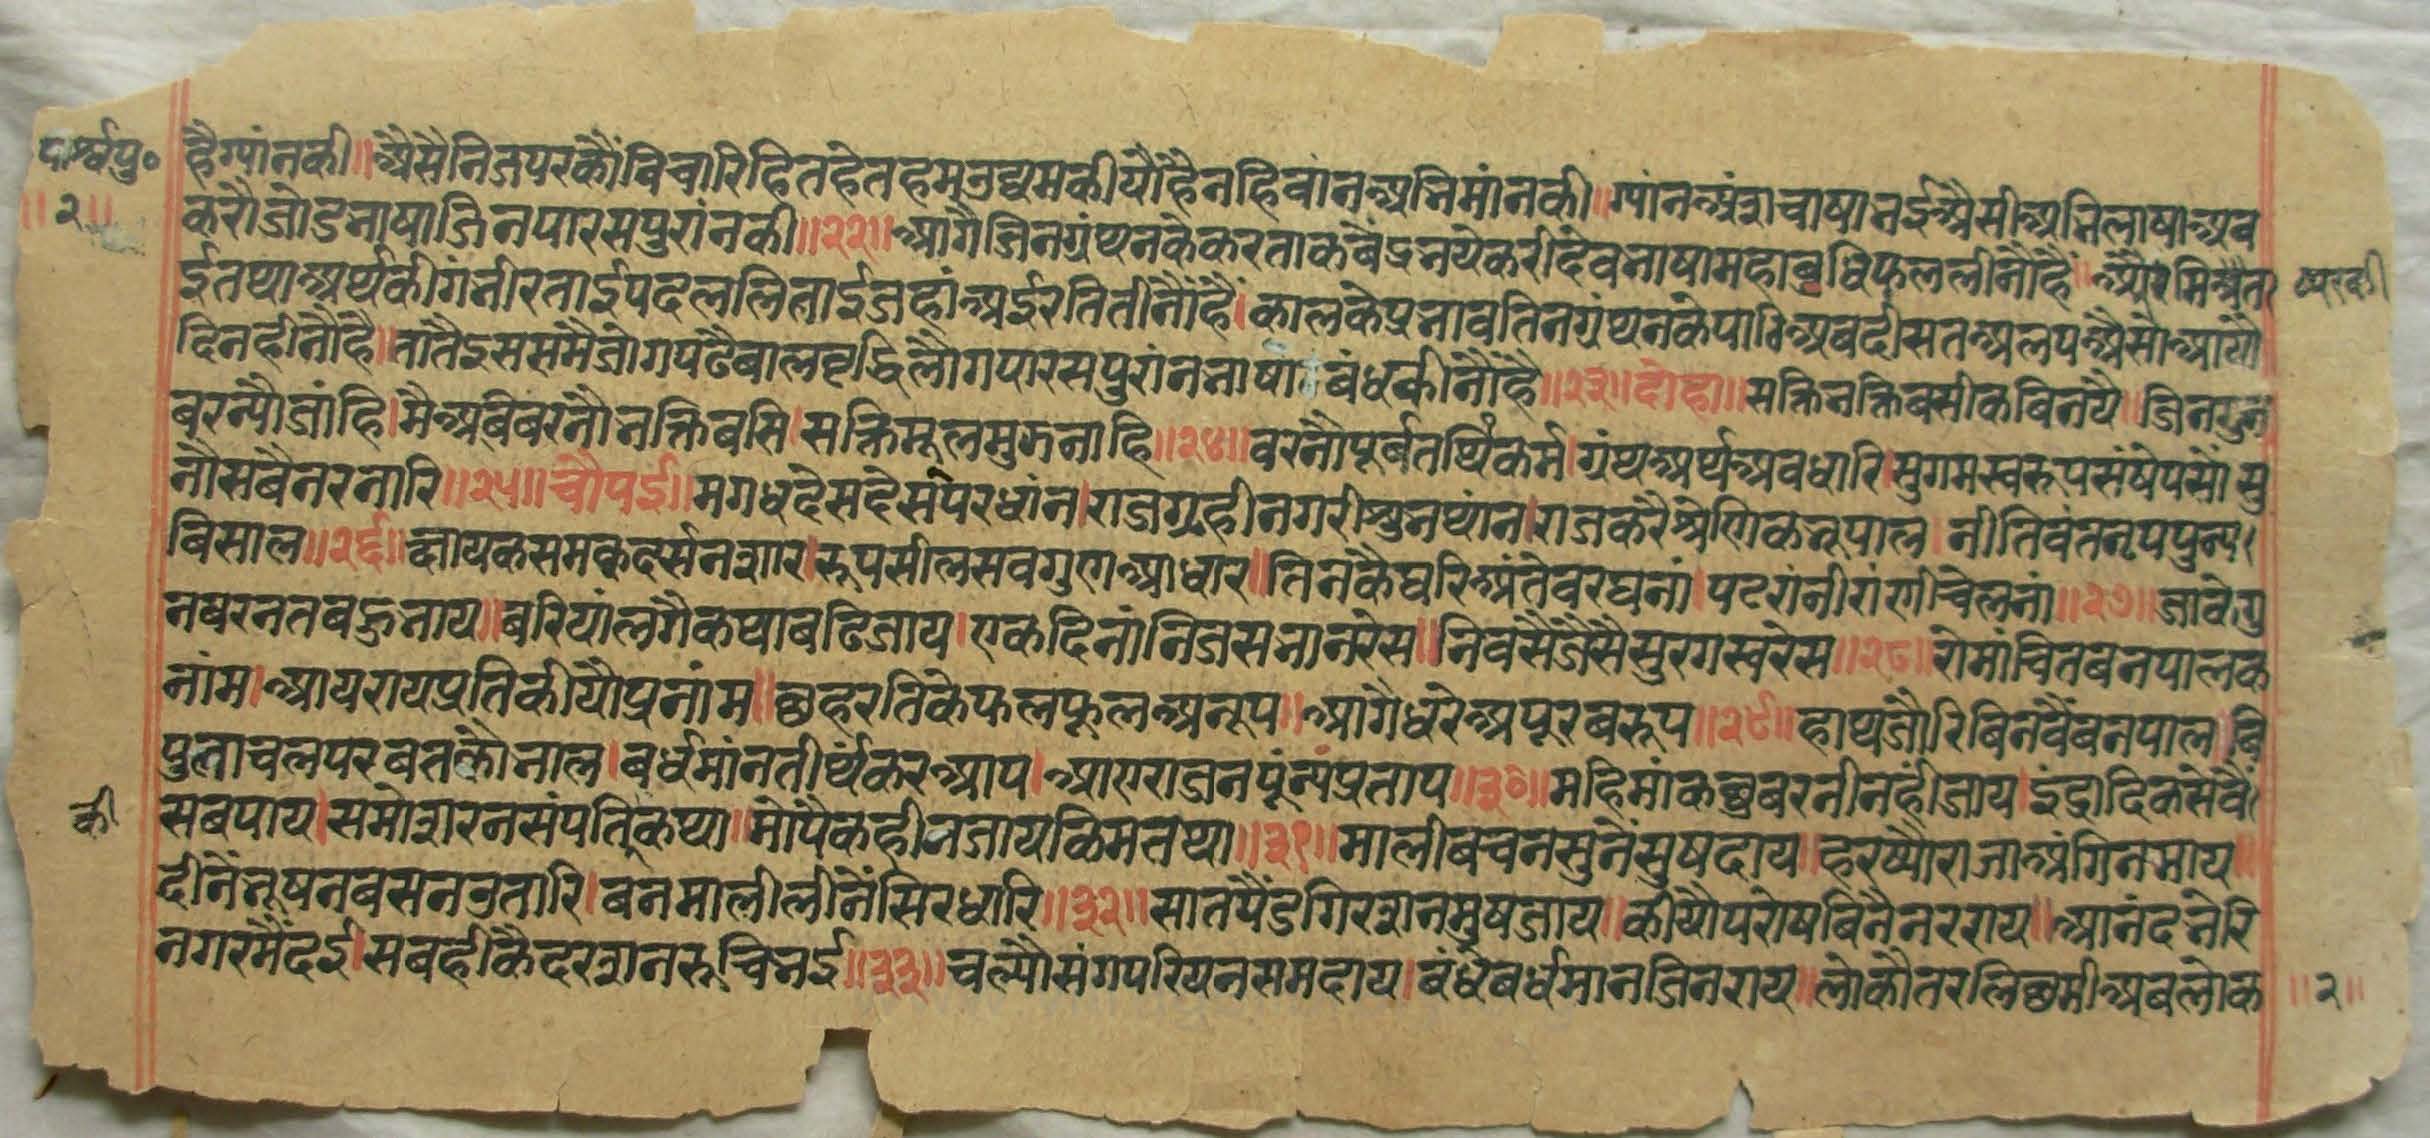 पार्श्वपु॰
॥२॥
हैग्यांनकी॥अैसैनिजपरकौंविचारिहितहेतहमउद्यमकीयौहैनहिवांनअभिमांनकी॥ग्यांनअंशचाषाभईअैसीअभिलाषाअब
करौजोडभाषाजिनपारसपुरांनकी॥२२॥आगैजिनग्रंथनकेकरताकबेंद्रनयेकरीदेवभाषामहाबुधिफललीनौहै॥औरमिश्रत
ईतथाअर्थकीगंभीरताईपदललिताईजहांअईरतितीनौंहैं।कालकेप्रभावतिनग्रंथनकेपाठीअबदीसतअलपअैसौआयौ
दिनहीनौहै॥तातैइससमैजोगपढैबालबुद्धिलोगपारसपुरांनभाषाबंधकीनौंहै॥२३॥दोहा॥सक्तिभक्तिबसीकबिनयै॥जिनगुन
बरन्यौजांहि।मैअबबिबरनौभक्तिबसि।सक्तिमूलमुझनाहि॥२४॥वरनौपूर्बतर्थिकर्म।ग्रंथअर्थअवधारि।सुगमस्वरूपसंषेपसौंसु
नौसबैनरनारि॥२५॥चौपई॥मगधदेसदेसंपरधांन।राजग्रहीनगरीशुभथांन।राजकरैश्रेणिकभूपाल।नीतिवंतनृपपुन्य
बिसाल॥२६॥क्षायकसमकदर्सनशार।रूपसीलसवगुणआधार॥तिनकैघरिअंतेवरघनां।पटरांनीरांणीचेलनां॥२७॥जाकेगु
नबरनतबहुभाय॥बरियांलगैकथाबढिजाय।एकदिनांनिजसभानरेस॥निवसैजैसैसुरगस्वरेस॥२८॥रोमांचितबनपालक
नांम।आयरायप्रतिकीयौप्रनांम॥छहरतिकेफलफूलअनूप॥आगैधरेअपूरबरूप॥२९॥हाथजोरिबिनवैंबनपाल।बि
पुलाचलपरबतकौभाल।बर्धमांनतीर्थंकरआप।आएराजनपूंन्यंप्रताप॥३०॥महिमांकछुबरनीनहींजाय।इंद्रादिकसेवै
सबपाय।समोशरनसंपतिकथा॥मोपैकहीनजायकिमतथा॥३१॥मालीबचनसुनैंसुषदाय॥हरष्यौराजाअंगिनमाय॥
दीनैभूषनबसनउतारि।बनमालीलीनैंसिरधारि॥३२॥सातपैंडगिरशनमुषजाय॥कीयौपरोषबिनैनरराय॥आनंदभेरि
नगरमैंदई।सबहीकैदरशनरुचिभई॥३३॥चल्यौसंगपरियनसमदाय।बंधेबर्धमानजिनराय॥लोकौतरलिछमीअबलोक
की
॥२॥